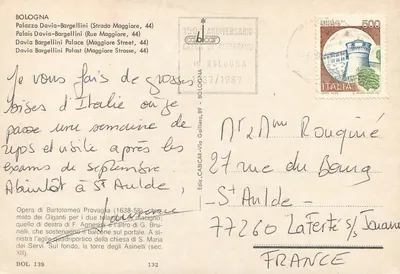 BOLOGNA
Palazzo Davia-Bargellini (Strada Maggiore, 44)
Palais Davia-Bargellini (Rue Maggiore, 44)
Davia Bargellini Palace (Maggiore Street, 44)
Davia Bargellini Palast (Maggiore Strasse, 44)
ANNIVERSARIO
BOLOGNA
1987
500
ITALIA
Je vous fais de grosses
bises d'Italie où je
passe une semaine de
repos et visite après les
exams de septembre
A bientôt à St Aulde,
Opera di Bartolomeo Provaglia (1638-58)
mati dei Giganti per i due
quelle di destra di F. Agnesini e l'altro di G. Bru-
nelli, che sostengono il balcone sul portale. A si-
nistra l'abside della chiesa di S. Maria
dei Servi. Sul fondo, la torre degli Asinelli (sec.
XII).
BOL. 139 132
Ediz. CASCAR-Via Galliera, 89 - BOLOGNA
Mr & Mme Rouginé
27 rue du Bourg
-St Aulde-
77260 LaFerté s/s Jouarre
FRANCE